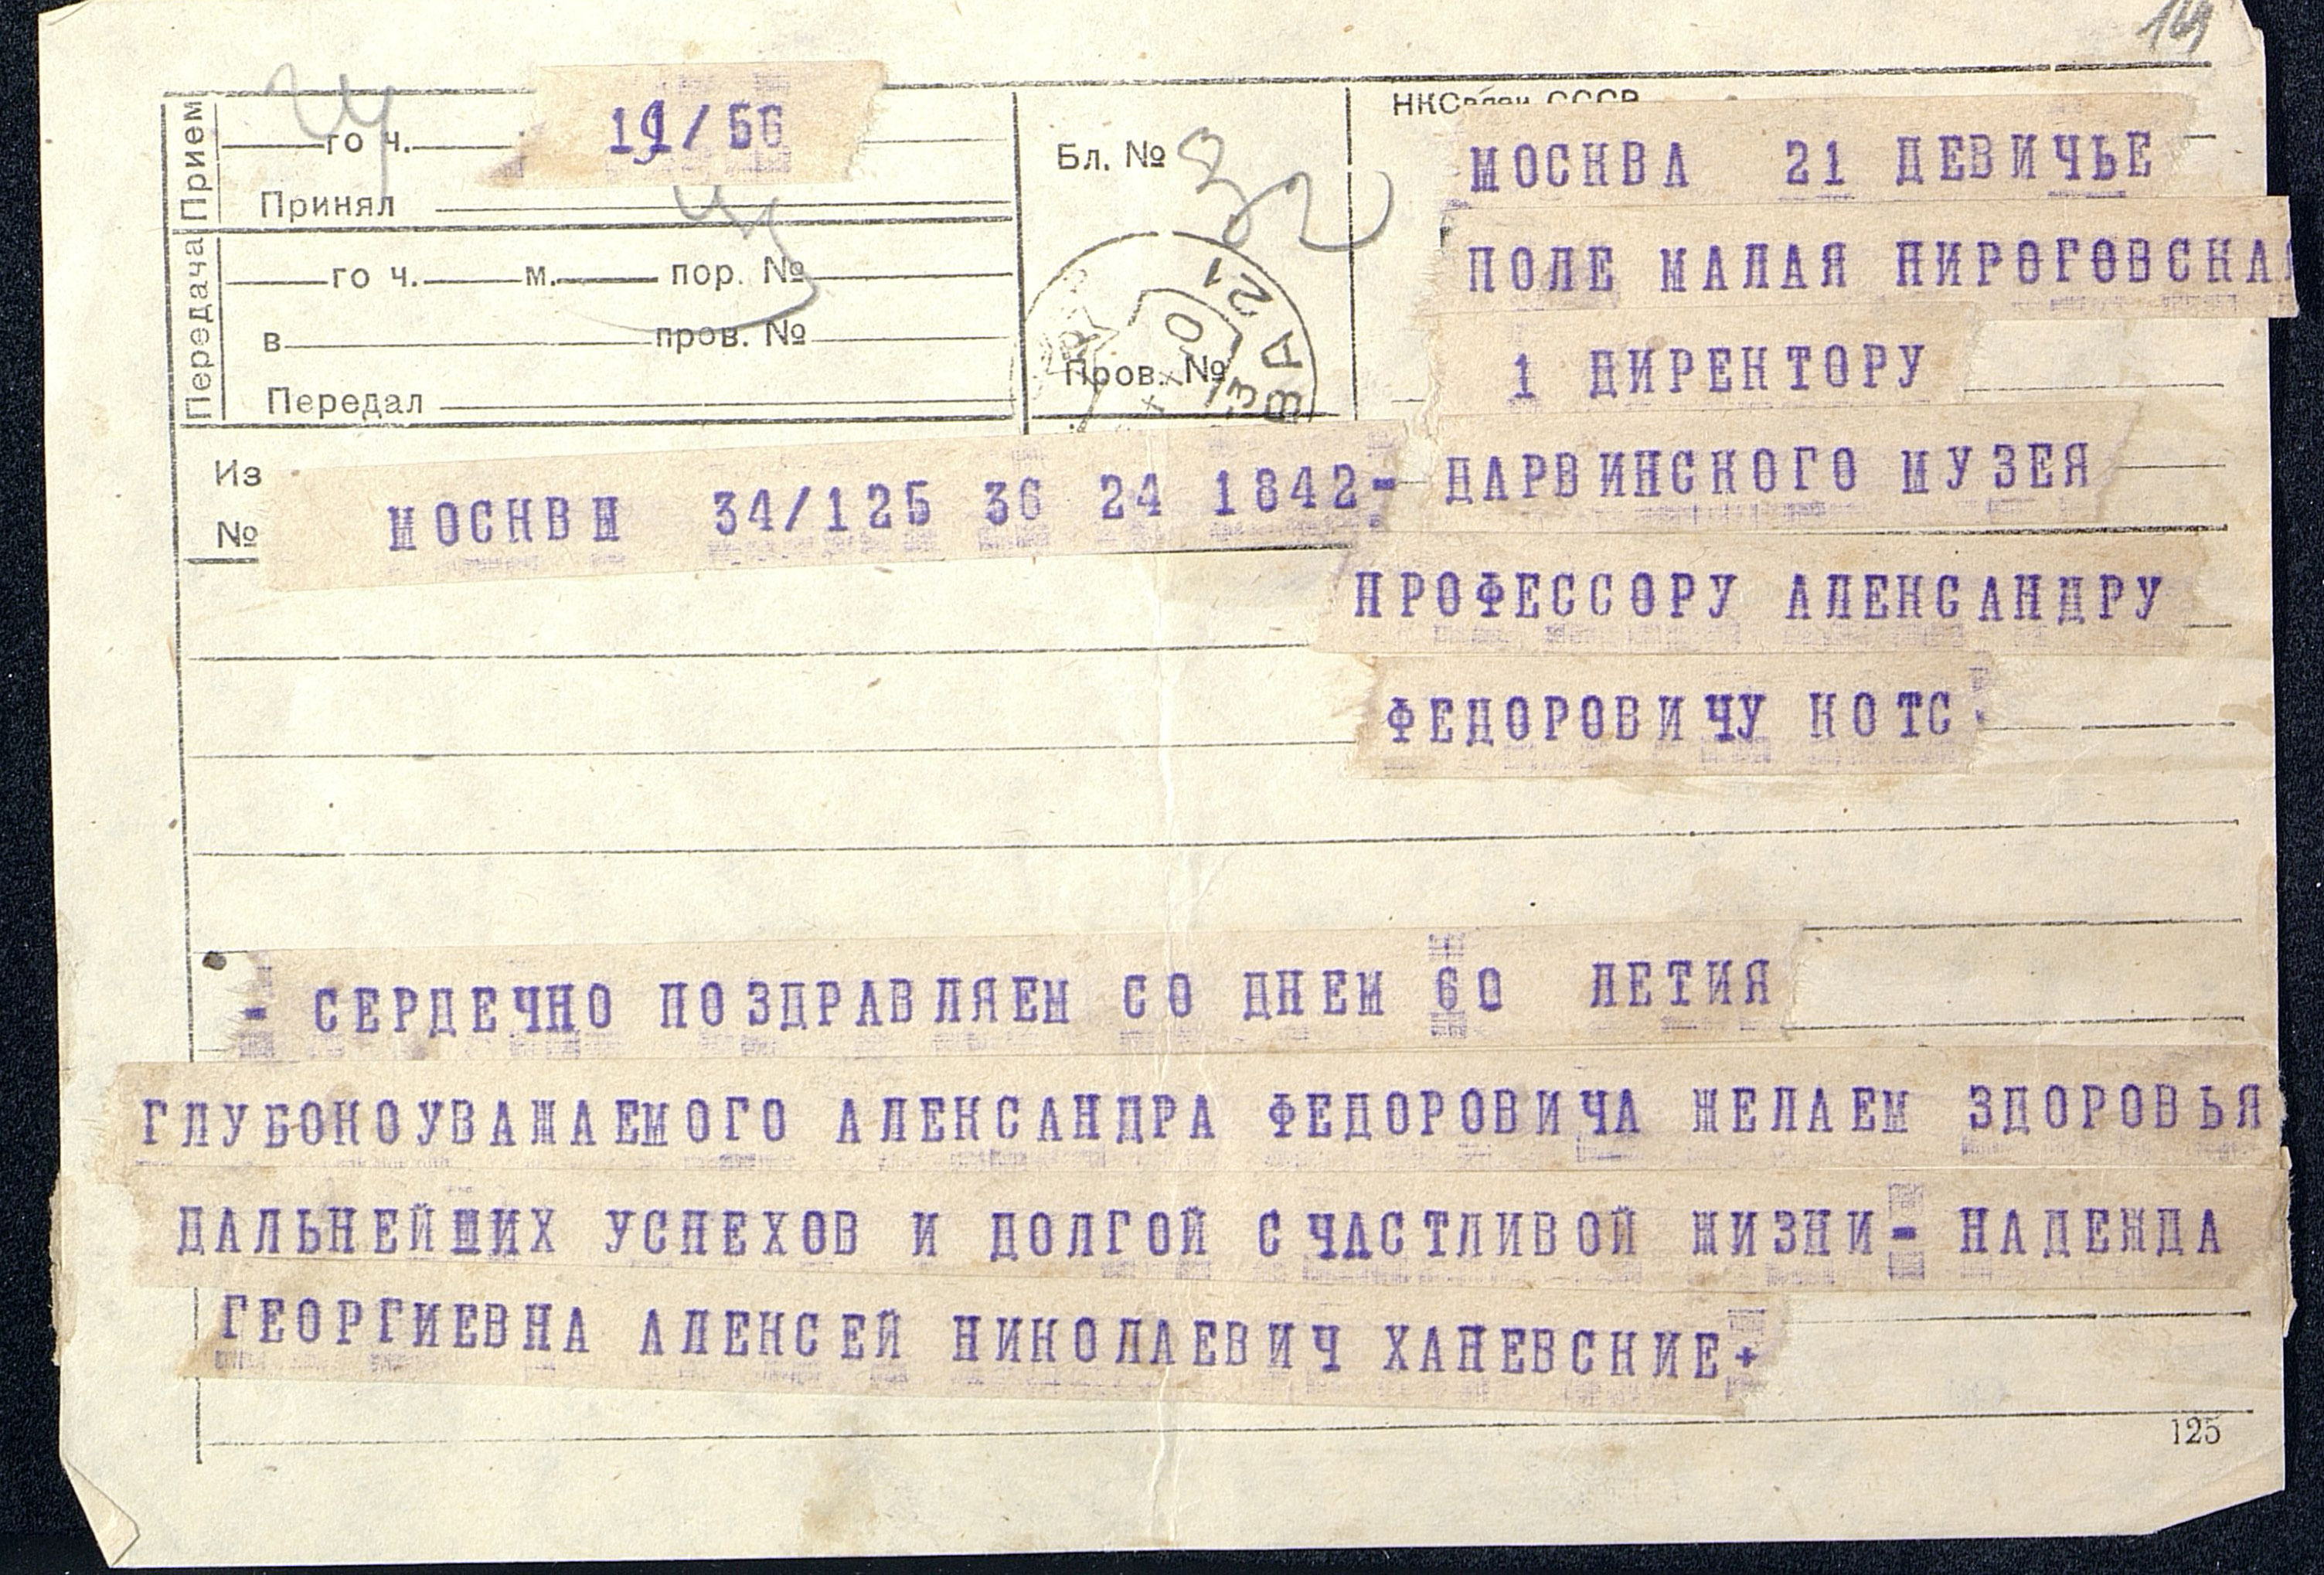 НКСвязи СССР
Прием
го ч.
19/56
Принял
Передача
го ч. м. пор. №
в пров. №
Передал
Бл. № 32
Пров. №
МОСКВА 21 ДЕВИЧЬЕ
ПОЛЕ МАЛАЯ ПИРОГОВСКАЯ
1 ДИРЕКТОРУ
ДАРВИНСКОГО МУЗЕЯ
ПРОФЕССОРУ АЛЕКСАНДРУ
ФЕДОРОВИЧУ КОТС
Из
№
МОСКВЫ 34/125 36 24 1842=
= СЕРДЕЧНО ПОЗДРАВЛЯЕМ СО ДНЕМ 60 ЛЕТИЯ
ГЛУБОКОУВАЖАЕМОГО АЛЕКСАНДРА ФЕДОРОВИЧА ЖЕЛАЕМ ЗДОРОВЬЯ
ДАЛЬНЕЙШИХ УСПЕХОВ И ДОЛГОЙ СЧАСТЛИВОЙ ЖИЗНИ= НАДЕЖДА
ГЕОРГИЕВНА АЛЕКСЕЙ НИКОЛАЕВИЧ ХАНЕВСКИЕ+
125